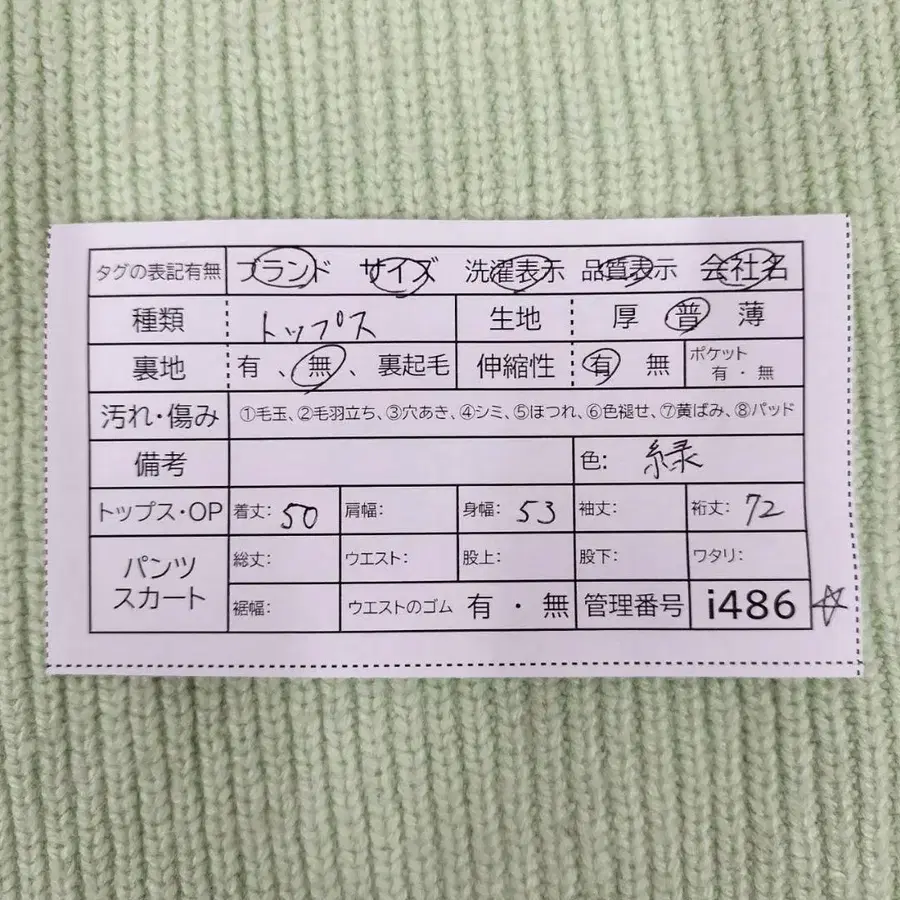 タグの表記有無 ブランド サイズ 洗濯表示 品質表示 会社名
種類 トップス 生地 厚 普 薄
裏地 有 、無 、裏起毛 伸縮性 有 無 ポケット 有 ・ 無
汚れ・傷み ①毛玉、②毛羽立ち、③穴あき、④シミ、⑤ほつれ、⑥色褪せ、⑦黄ばみ、⑧パッド
備考 色: 緑
トップス・OP 着丈: 50 肩幅: 身幅: 53 袖丈: 裄丈: 72
パンツ スカート 総丈: ウエスト: 股上: 股下: ワタリ:
裾幅: ウエストのゴム 有 ・ 無 管理番号 i486